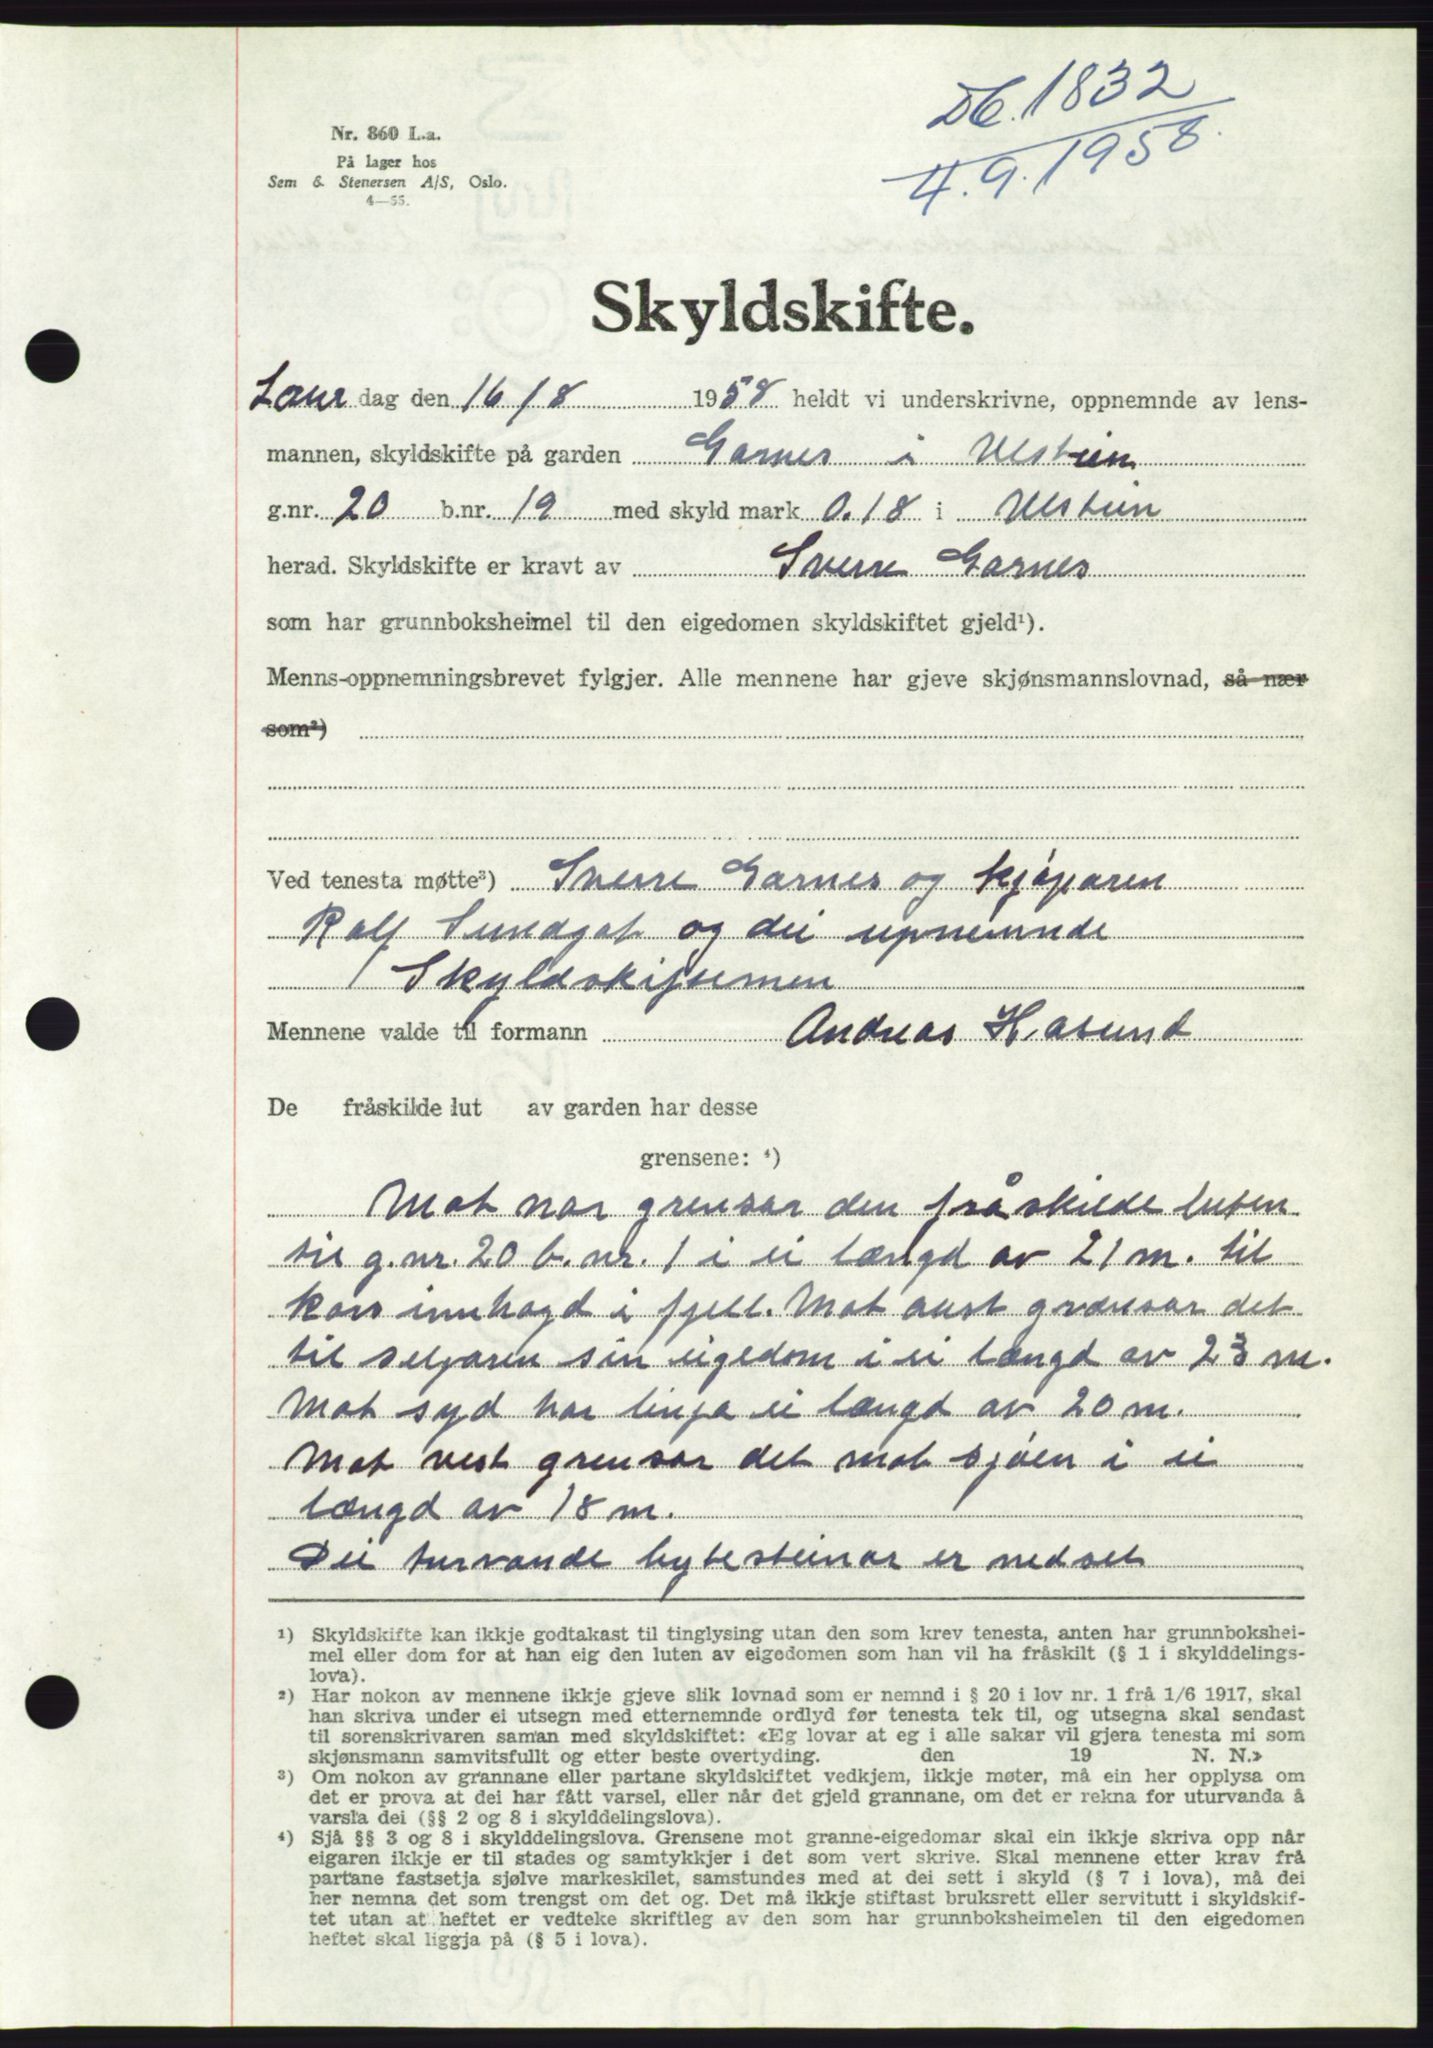 Db. 1832
4.9.1958.
Nr. 860 L.a.
På lager hos
Sem & Stenersen A/S, Oslo.
4—55.
Skyldskifte.
Laur dag den 16/8 1958 heldt vi underskrivne, oppnemnde av lens-
mannen, skyldskifte på garden Garnes i Ulstein
g.nr. 20 b.nr. 19 med skyld mark 0.18 i Ulstein
herad. Skyldskifte er kravt av Sverre Garnes
som har grunnboksheimel til den eigedomen skyldskiftet gjeld¹).
Menns-oppnemningsbrevet fylgjer. Alle mennene har gjeve skjønsmannslovnad, så nær
som²)
Ved tenesta møtte³) Sverre Garnes og kjøparen
Ralf Sundgot og dei upnemnde
Skyldskiftemen
Mennene valde til formann Andreas Hasund
De fråskilde lut av garden har desse
grensene: ⁴)
Mot nor grensar den fråskilde luten
til g.nr. 20 b.nr. 1 i ei længd av 21 m. til
kors innhogd i fjell. Mot aust grænsar det
til seljaren sin eigedom i ei længd av 23 m.
Mot syd har linja ei længd av 20 m.
Mot vest grensar det mot sjøen i ei
længd av 18 m.
Dei turvande bytesteinar er nedset
¹) Skyldskifte kan ikkje godtakast til tinglysing utan den som krev tenesta, anten har grunnbokshei-
mel eller dom for at han eig den luten av eigedomen som han vil ha fråskilt (§ 1 i skylddelings-
lova).
²) Har nokon av mennene ikkje gjeve slik lovnad som er nemnd i § 20 i lov nr. 1 frå 1/6 1917, skal
han skriva under ei utsegn med etternemnde ordlyd før tenesta tek til, og utsegna skal sendast
til sorenskrivaren saman med skyldskiftet: «Eg lovar at eg i alle sakar vil gjera tenesta mi som
skjønsmann samvitsfullt og etter beste overtyding. den 19 N. N.»
³) Om nokon av grannane eller partane skyldskiftet vedkjem, ikkje møter, må ein her opplysa om
det er prova at dei har fått varsel, eller når det gjeld grannane, om det er rekna for uturvanda å
varsla dei (§§ 2 og 8 i skylddelingslova).
⁴) Sjå §§ 3 og 8 i skylddelingslova. Grensene mot granne-eigedomar skal ein ikkje skriva opp når
eigaren ikkje er til stades og samtykkjer i det som vert skrive. Skal mennene etter krav frå
partane fastsetja sjølve markeskilet, samstundes med at dei sett i skyld (§ 7 i lova), må dei
her nemna det som trengst om det og. Det må ikkje stiftast bruksrett eller servitutt i skyldskif-
tet utan at heftet er vedteke skriftleg av den som har grunnboksheimelen til den eigedomen
heftet skal liggja på (§ 5 i lova).